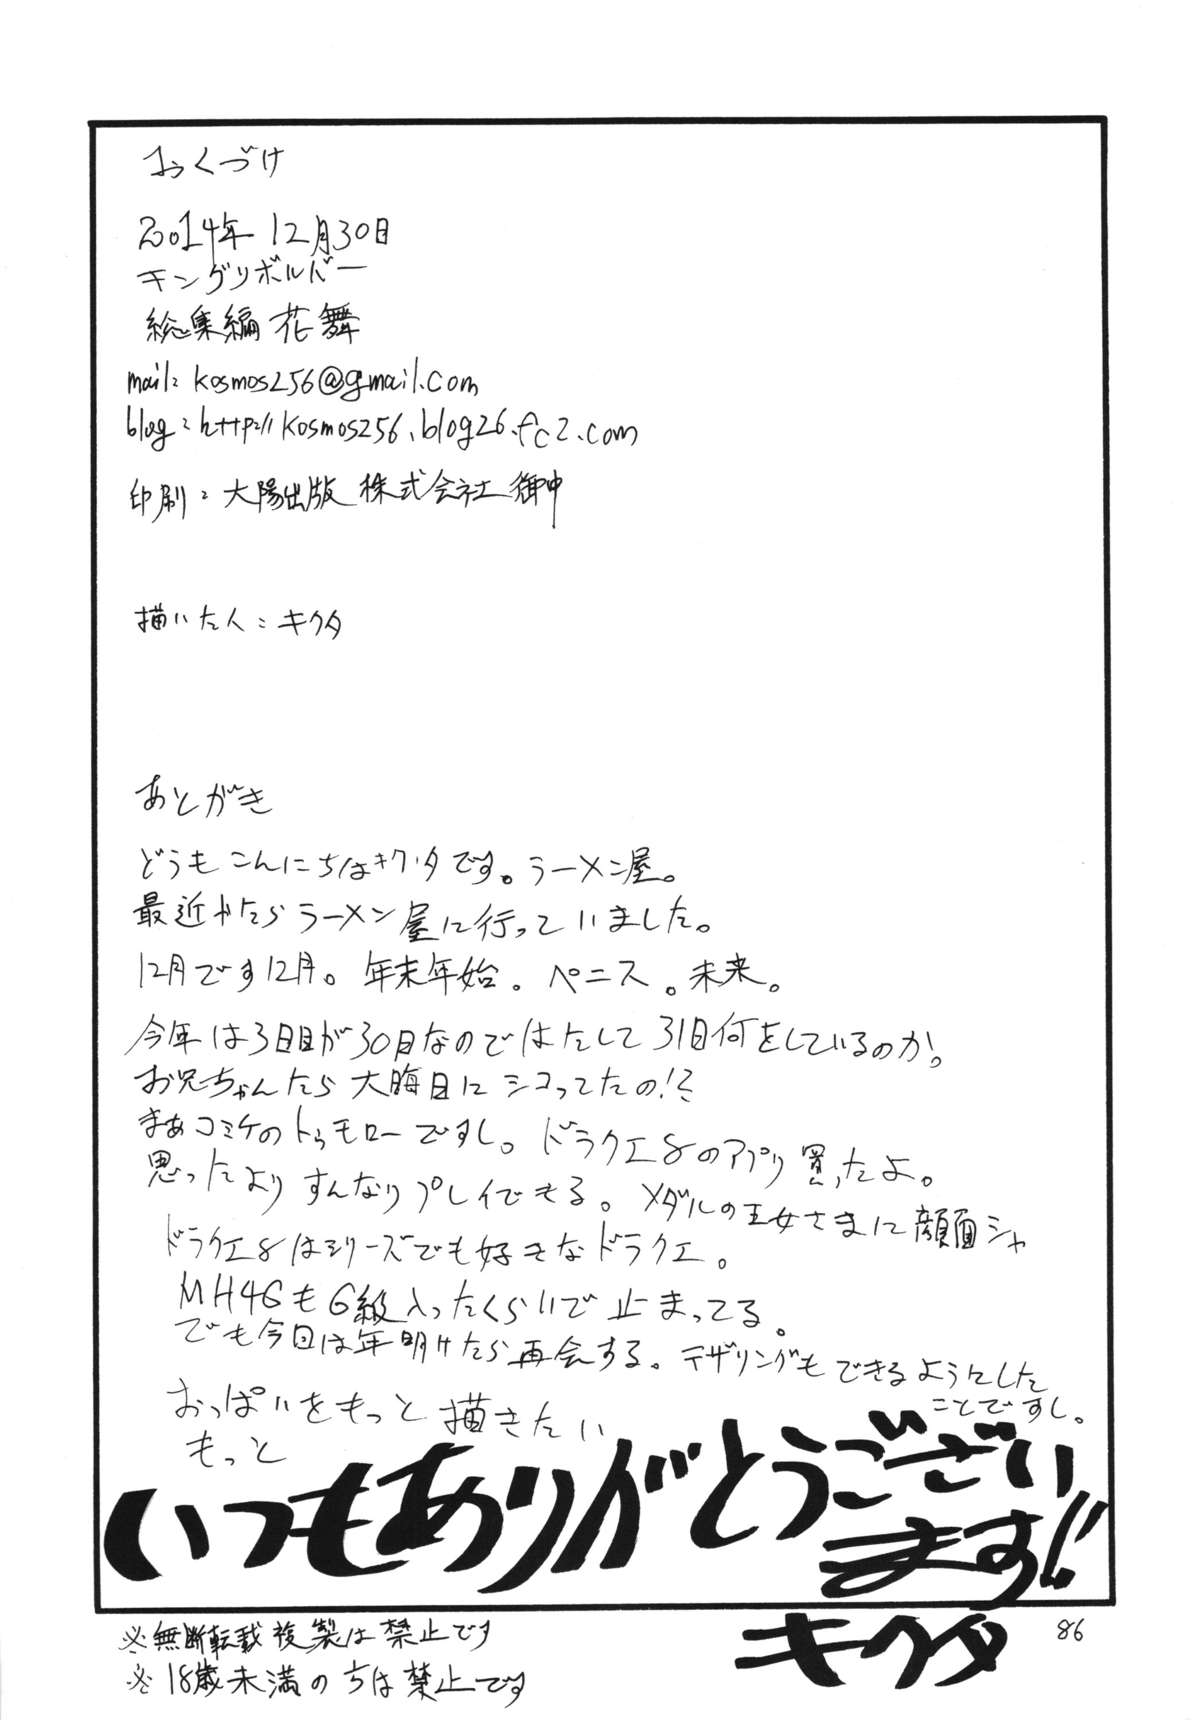 おくづけ
2014年 12月30日
キングリボルバー
総集編 花舞
mail: kosmos256@gmail.com
blog: http://kosmos256.blog26.fc2.com
印刷: 大陽出版 株式会社 御中
描いた人: キクタ
あとがき
どうもこんにちはキクタです。ラーメン屋。
最近やたらラーメン屋に行っていました。
12月です12月。年末年始。ペニス。未来。
今年は3日目が30日なのではたして31日何をしているのか。
お兄ちゃんたら大晦日にシコってたの!?
まぁコミケのトゥモローですし。ドラクエ8のアプリ買ったよ。
思ったよりすんなりプレイできる。メダルの王女さまに顔面シャ
ドラクエ8はシリーズでも好きなドラクエ。
MH4GもG級入ったくらいで止まってる。
でも今回は年明けたら再会する。テザリングもできるようにした
ことですし。
おっぱいをもっと描きたい
もっと
いつもありがとうござい
ます!!
キクタ
86
※無断転載複製は禁止です
※18歳未満のちは禁止です